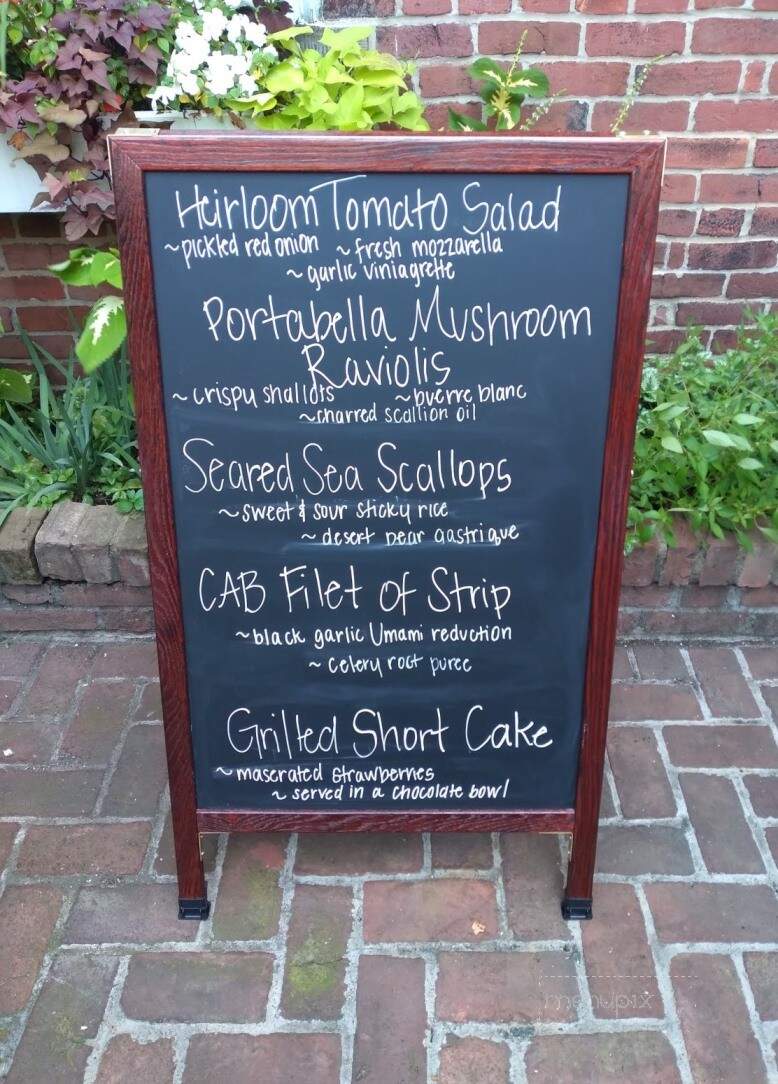 Heirloom Tomato Salad
~pickled red onion ~fresh mozzarella
~garlic viniagrette
Portabella Mushroom
Raviolis
~crispy shallots ~buerre blanc
~charred scallion oil
Seared Sea Scallops
~sweet & sour sticky rice
~desert pear gastrique
CAB Filet of Strip
~black garlic Umami reduction
~celery root puree
Grilled Short Cake
~maserated strawberries
~served in a chocolate bowl
menupix